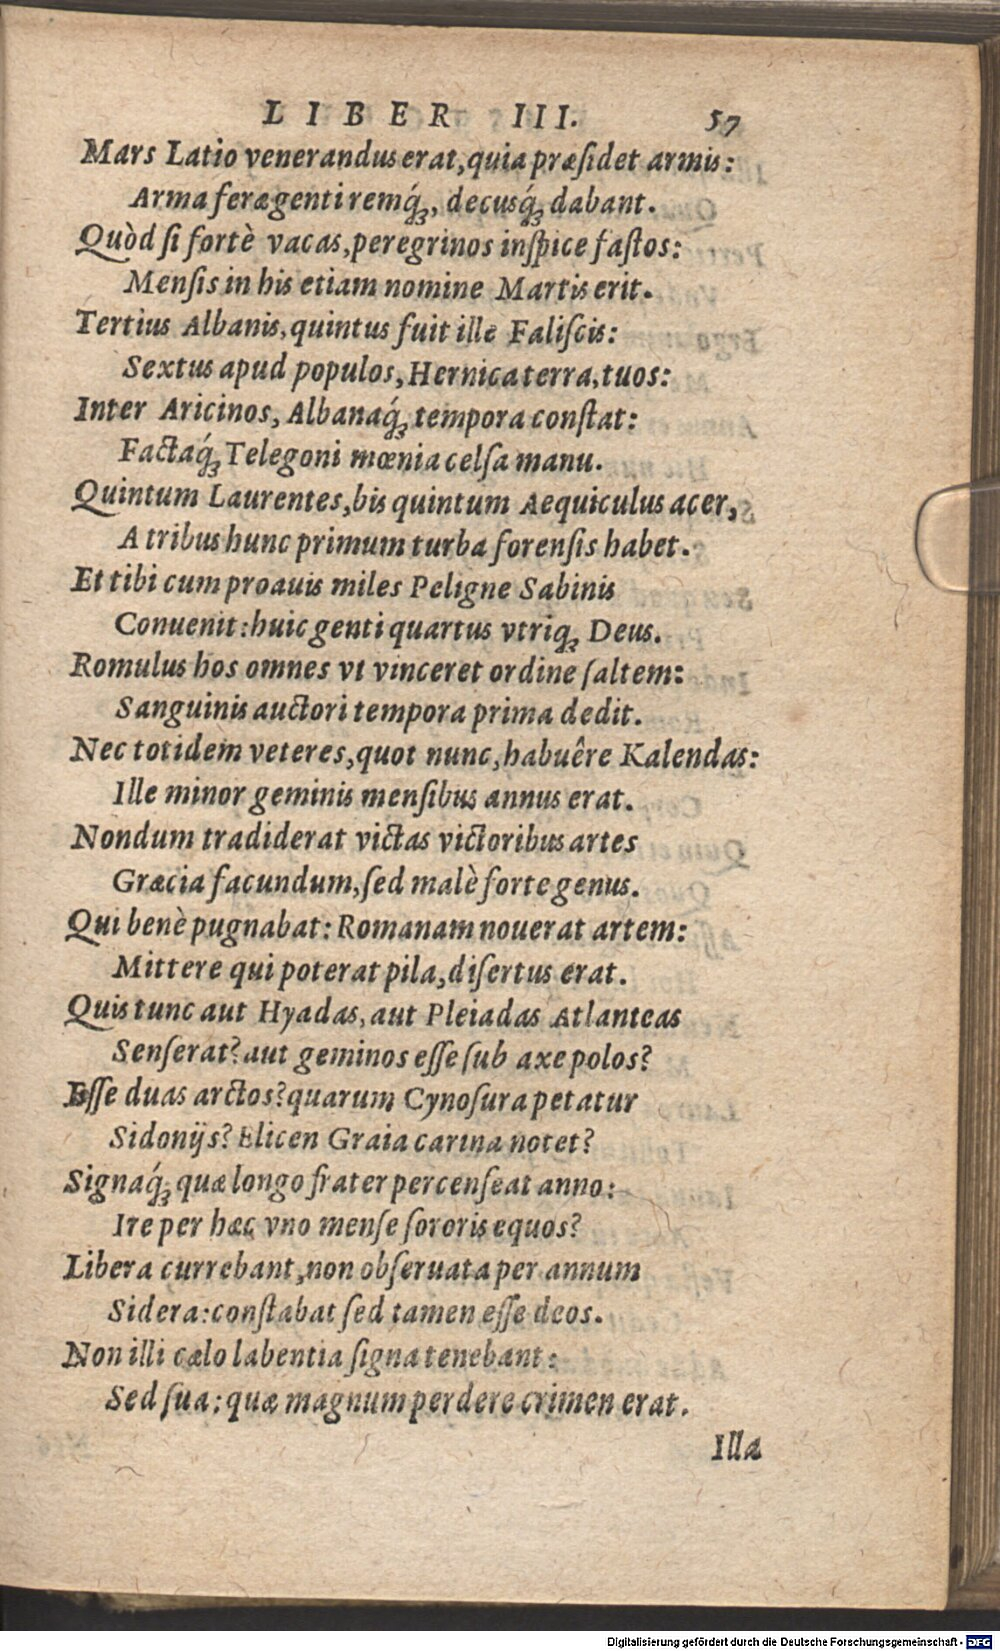 LIBER III. 57
Mars Latio venerandus erat, quia præſidet armis:
Arma feræ genti remq́ꝫ, decusq́ꝫ dabant.
Quòd ſi fortè vacas, peregrinos inſpice faſtos:
Menſis in his etiam nomine Martis erit.
Tertius Albanis, quintus fuit ille Faliſcis:
Sextus apud populos, Hernica terra, tuos:
Inter Aricinos, Albanaq́ꝫ tempora conſtat:
Factaq́ꝫ Telegoni mœnia celſa manu.
Quintum Laurentes, bis quintum Aequiculus acer,
A tribus hunc primum turba forenſis habet.
Et tibi cum proauis miles Peligne Sabinis
Conuenit: huic genti quartus vtriqꝫ Deus.
Romulus hos omnes vt vinceret ordine ſaltem:
Sanguinis auctori tempora prima dedit.
Nec totidem veteres, quot nunc, habuêre Kalendas:
Ille minor geminis menſibus annus erat.
Nondum tradiderat victas victoribus artes
Græcia facundum, ſed malè forte genus.
Qui benè pugnabat: Romanam nouerat artem:
Mittere qui poterat pila, diſertus erat.
Quis tunc aut Hyadas, aut Pleiadas Atlanteas
Senſerat? aut geminos eſſe ſub axe polos?
Eſſe duas arctos? quarum Cynoſura petatur
Sidonijs? Elicen Graia carina notet?
Signaq́ꝫ quæ longo frater percenſeat anno:
Ire per hæc vno menſe ſororis equos?
Libera currebant, non obſeruata per annum
Sidera: conſtabat ſed tamen eſſe deos.
Non illi cælo labentia ſigna tenebant:
Sed ſua: quæ magnum perdere crimen erat.
Illa
Digitalisierung gefördert durch die Deutsche Forschungsgemeinschaft - DFG